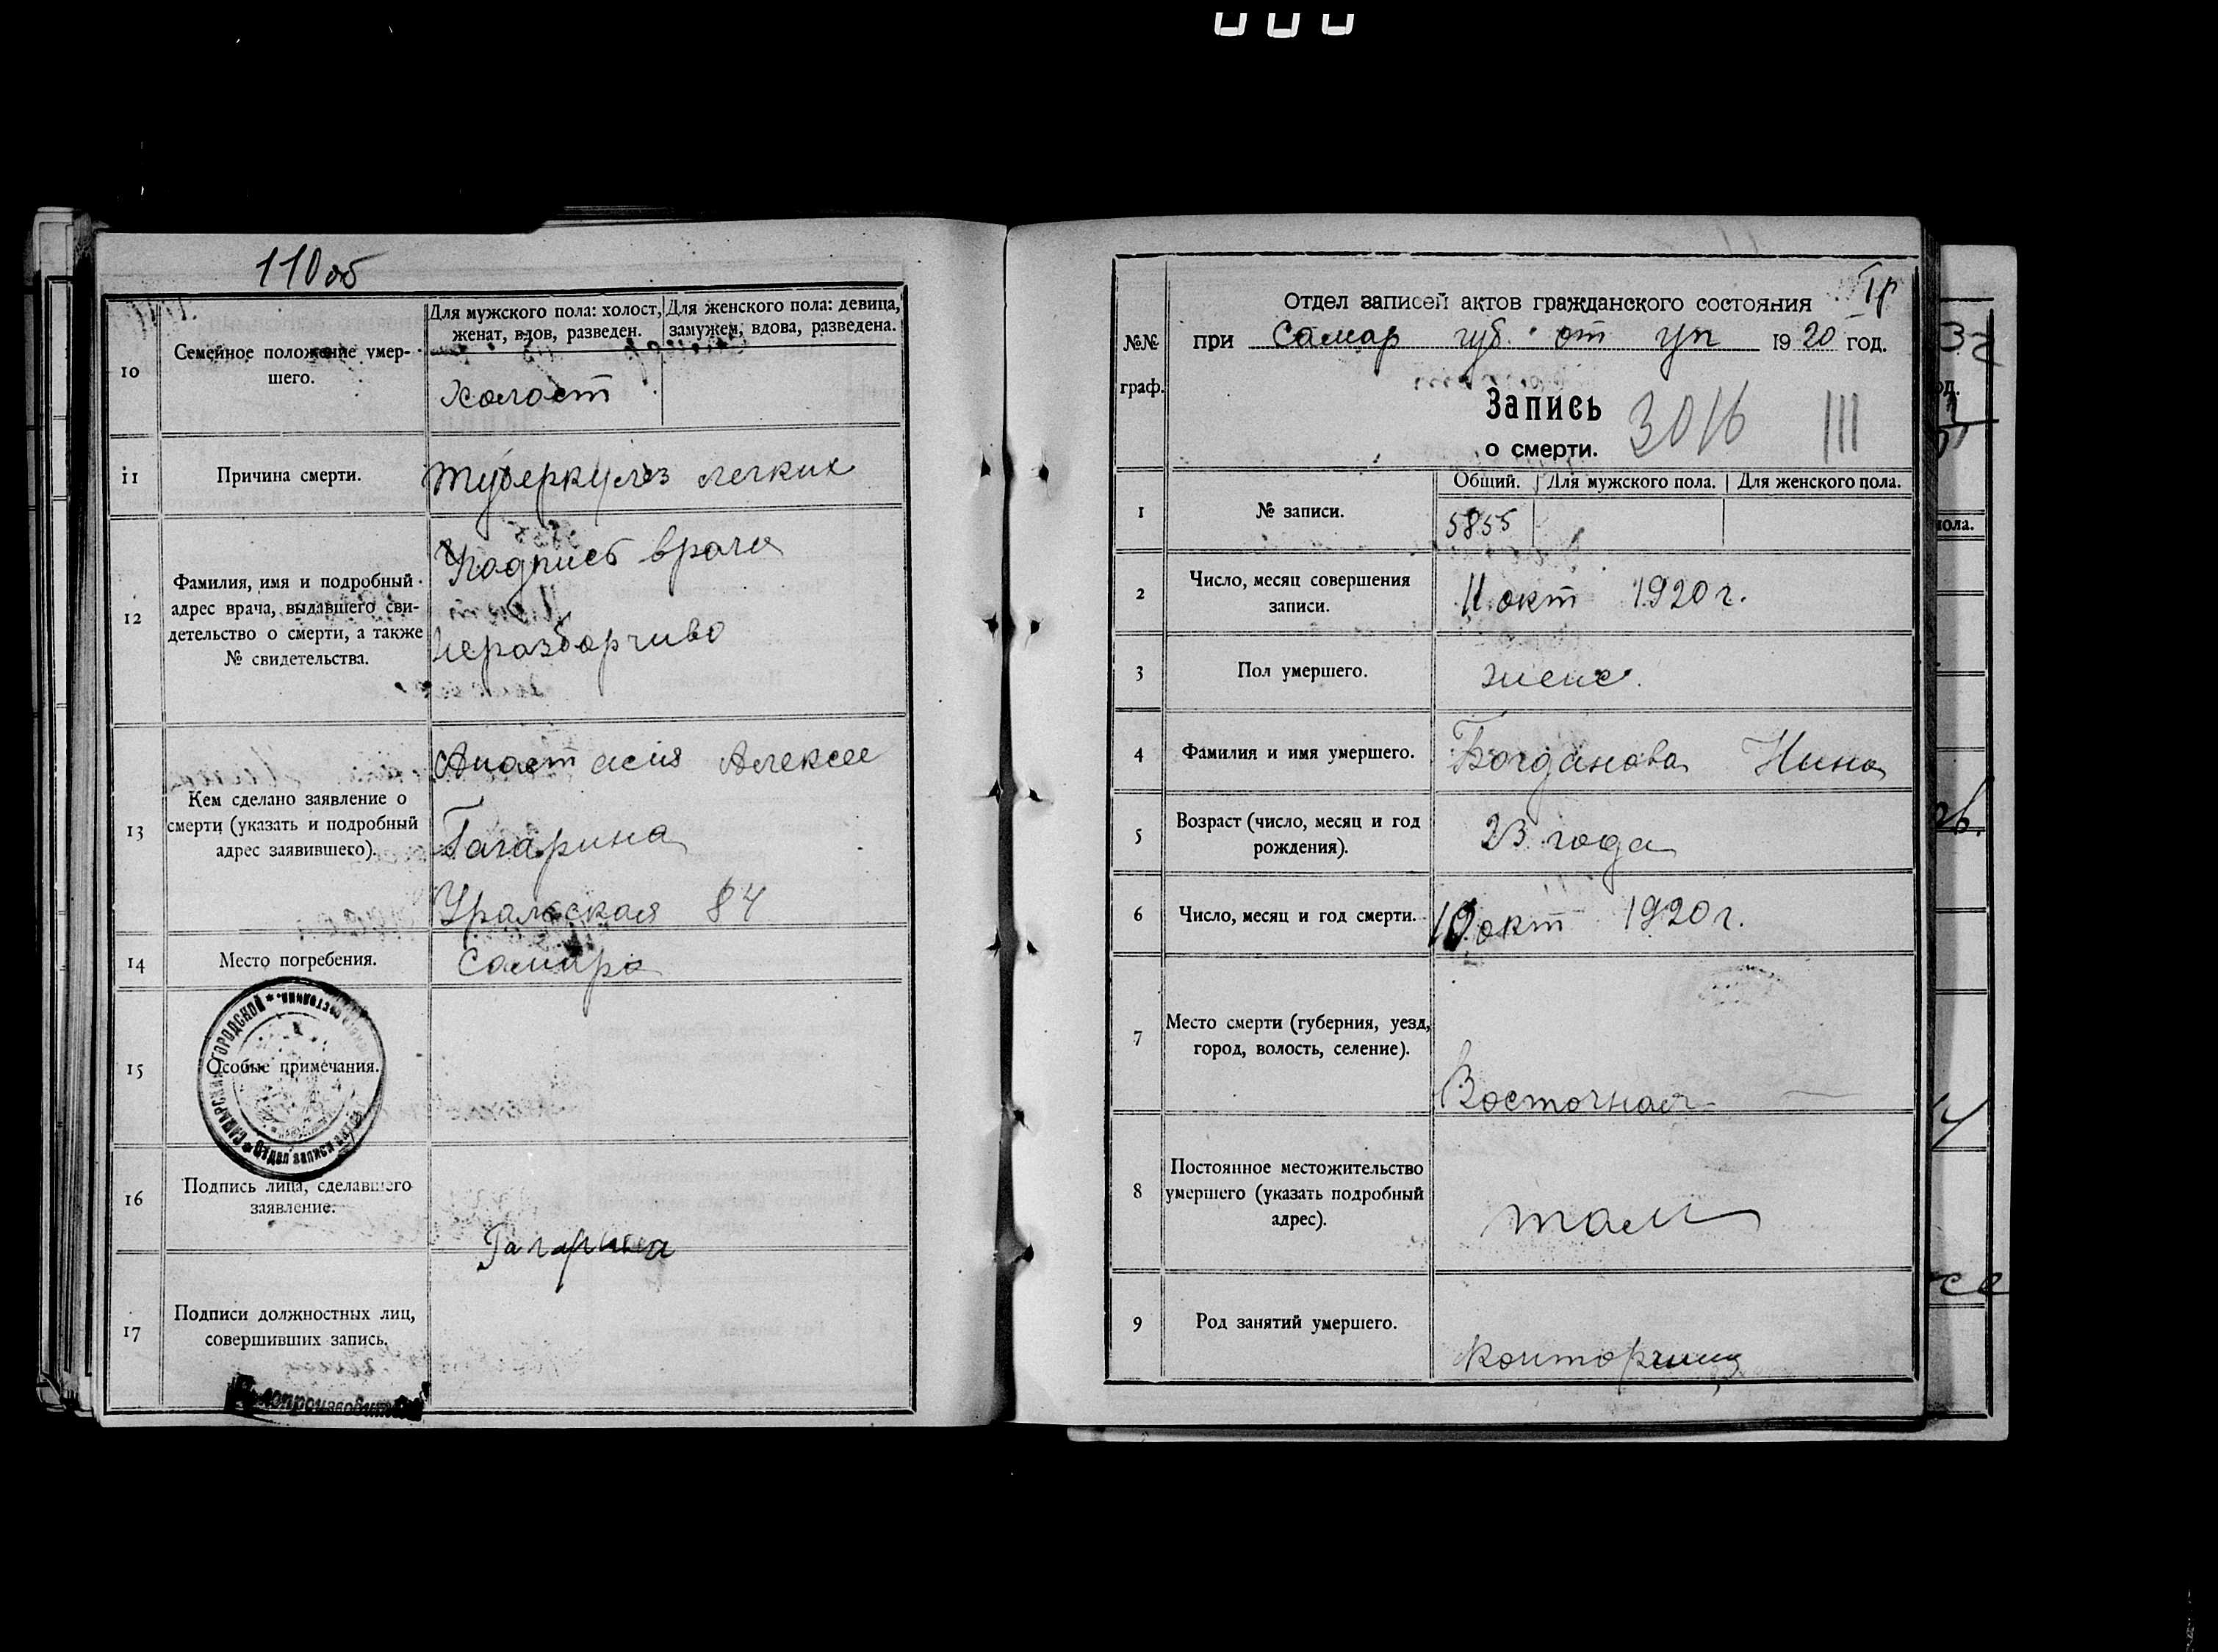 110об
10
Семейное положение умер-
шего.
Для мужского пола: холост,
женат, вдов, разведен.
Для женского пола: девица,
замужем, вдова, разведена.
холост
11
Причина смерти.
туберкулез легких
12
Фамилия, имя и подробный
адрес врача, выдавшего сви-
детельство о смерти, а также
№ свидетельства.
Подпись врача
неразборчиво
13
Кем сделано заявление о
смерти (указать и подробный
адрес заявившего).
Анастасия Алексее
Гагарина
Уральская 84
14
Место погребения.
Самара
15
Особые примечания.
САМАРСКИЙ ГОРОДСКОЙ
Отдел записи актов
16
Подпись лица, сделавшего
заявление.
Гагарина
17
Подписи должностных лиц,
совершивших запись.
Делопроизводитель
№№
граф.
Отдел записей актов гражданского состояния
при Самар губ. от уп 1920 год.
Запись
о смерти.
3016
111
1
№ записи.
Общий. Для мужского пола. Для женского пола.
5855
2
Число, месяц совершения
записи.
11 окт 1920 г.
3
Пол умершего.
женс.
4
Фамилия и имя умершего.
Богданова Нина
5
Возраст (число, месяц и год
рождения).
23 года
6
Число, месяц и год смерти.
10 окт 1920 г.
7
Место смерти (губерния, уезд,
город, волость, селение).
Восточная
8
Постоянное местожительство
умершего (указать подробный
адрес).
там
9
Род занятий умершего.